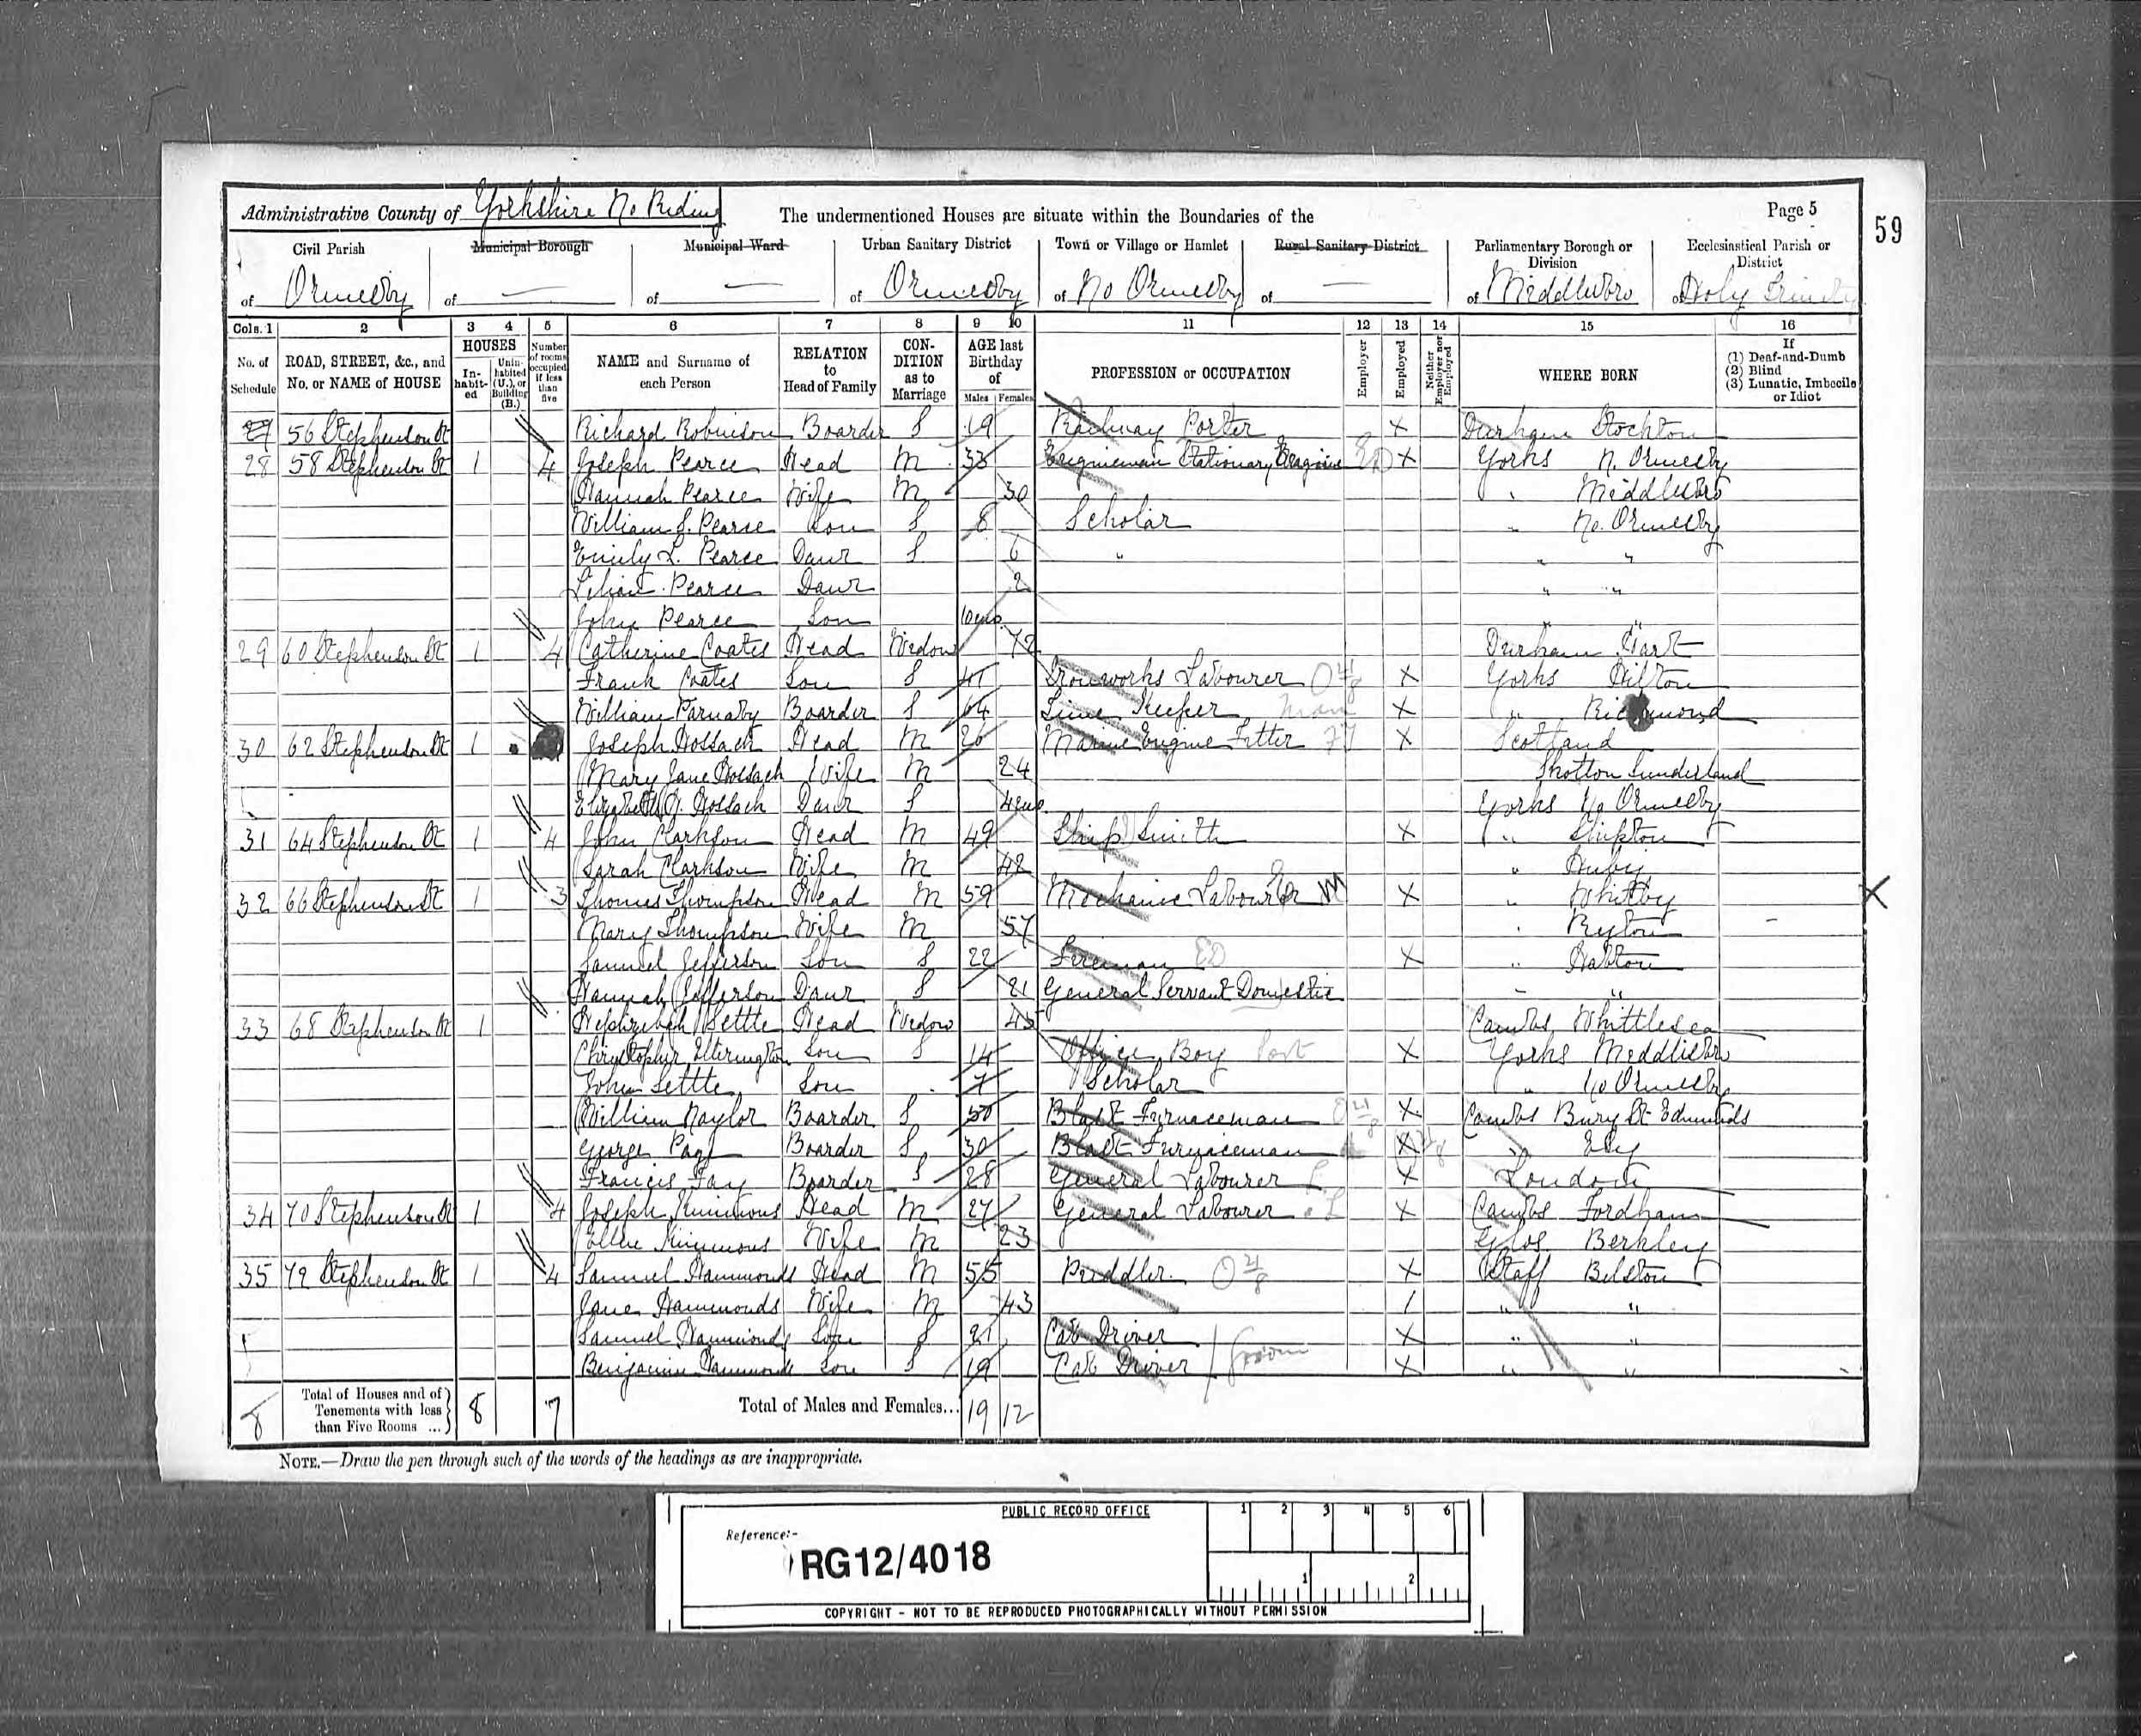 Administrative County of Yorkshire No Riding The undermentioned Houses are situate within the Boundaries of the Page 5
59
Civil Parish Municipal Borough Municipal Ward Urban Sanitary District Town or Village or Hamlet Rural Sanitary District Parliamentary Borough or Division Ecclesiastical Parish or District
of Ormesby of — of — of Ormesby of No Ormesby of — of Middlesbro of Holy Trinity
Cols. 1 2 3 4 5 6 7 8 9 10 11 12 13 14 15 16
No. of Schedule ROAD, STREET, &c., and No. or NAME of HOUSE HOUSES In-habit-ed Unin-habited (U.), or Building (B.) Number of rooms occupied if less than five NAME and Surname of each Person RELATION to Head of Family CON-DITION as to Marriage AGE last Birthday of Males Females PROFESSION or OCCUPATION Employer Employed Neither Employer nor Employed WHERE BORN If (1) Deaf-and-Dumb (2) Blind (3) Lunatic, Imbecile or Idiot
27 56 Stephenson St Richard Robinson Boarder S 19 Railway Porter X Durham Stockton
28 58 Stephenson St 1 4 Joseph Pearce Head M 33 Engineman Stationary Engine X Yorks N. Ormesby
Hannah Pearce Wife M 30 " Middlesbro
William J. Pearce Son S 8 Scholar " No. Ormesby
Emily L. Pearce Daur S 6 " " "
Lilian Pearce Daur 2 " "
John Pearce Son 10 mo. " "
29 60 Stephenson St 1 4 Catherine Coates Head Widow 72 Durham Hart
Frank Coates Son S 41 Ironworks Labourer X Yorks Hilton
William Parnaby Boarder S 64 Time Keeper X " Richmond
30 62 Stephenson St 1 Joseph Head M 26 Marine Engine Fitter X Scotland
Mary Jane Wife M 24 Shotton Sunderland
Elizabeth Daur S 4 mo Yorks No Ormesby
31 64 Stephenson St 1 4 John Clarkson Head M 49 Ship Smith X " Skipton
Sarah Clarkson Wife M 42 " Huby
32 66 Stephenson St 1 3 Thomas Thompson Head M 59 Mechanic Labourer M X " Whitby
Mary Thompson Wife M 57 " Ryton
Samuel Jefferson Son S 22 Fireman X " Habton
Hannah Jefferson Daur S 21 General Servant Domestic " "
33 68 Stephenson St 1 Hephzibah Settle Head Widow 45 Cambs Whittlesea
Christopher Etherington Son S 14 Office Boy Port X Yorks Middlesbro
John Settle Son 7 Scholar " No Ormesby
William Naylor Boarder S 50 Blast Furnaceman X Cambs Bury St Edmunds
George Page Boarder S 30 Blast Furnaceman X " Ely
Francis Fay Boarder S 28 General Labourer X London
34 70 Stephenson St 1 4 Joseph Kimmons Head M 27 General Labourer X Cambs Fordham
Ellen Kimmons Wife M 23 Glos Berkley
35 72 Stephenson St 1 4 Samuel Hammonds Head M 55 Puddler X Staff Bilston
Jane Hammonds Wife M 43 " "
Samuel Hammonds Son S 21 Cab Driver X " "
Benjamin Hammonds Son S 19 Cab Driver groom X " "
8 Total of Houses and of Tenements with less than Five Rooms ... 8 7 Total of Males and Females... 19 12
NOTE.—Draw the pen through such of the words of the headings as are inappropriate.
PUBLIC RECORD OFFICE 1 2 3 4 5 6
Reference:-
RG12/4018 1 2
COPYRIGHT - NOT TO BE REPRODUCED PHOTOGRAPHICALLY WITHOUT PERMISSION